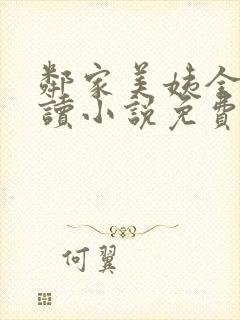 鄰家美姨全
讀小說免費
何翼